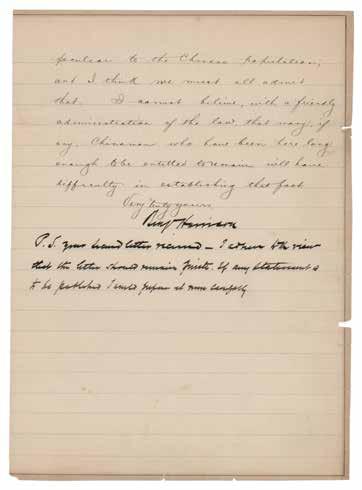 peculiar to the Chinese population;
and I think we must all admit
that. I cannot believe, with a friendly
administration of the law, that many, if
any, Chinaman who have been here long
enough to be entitled to remain will have
difficulty in establishing that fact
Very truly yours,
Benj Harrison
P.S. your second letter received – I adhere to the view
that the letter should remain private. If any statement is
to be published I would prepare it more carefully